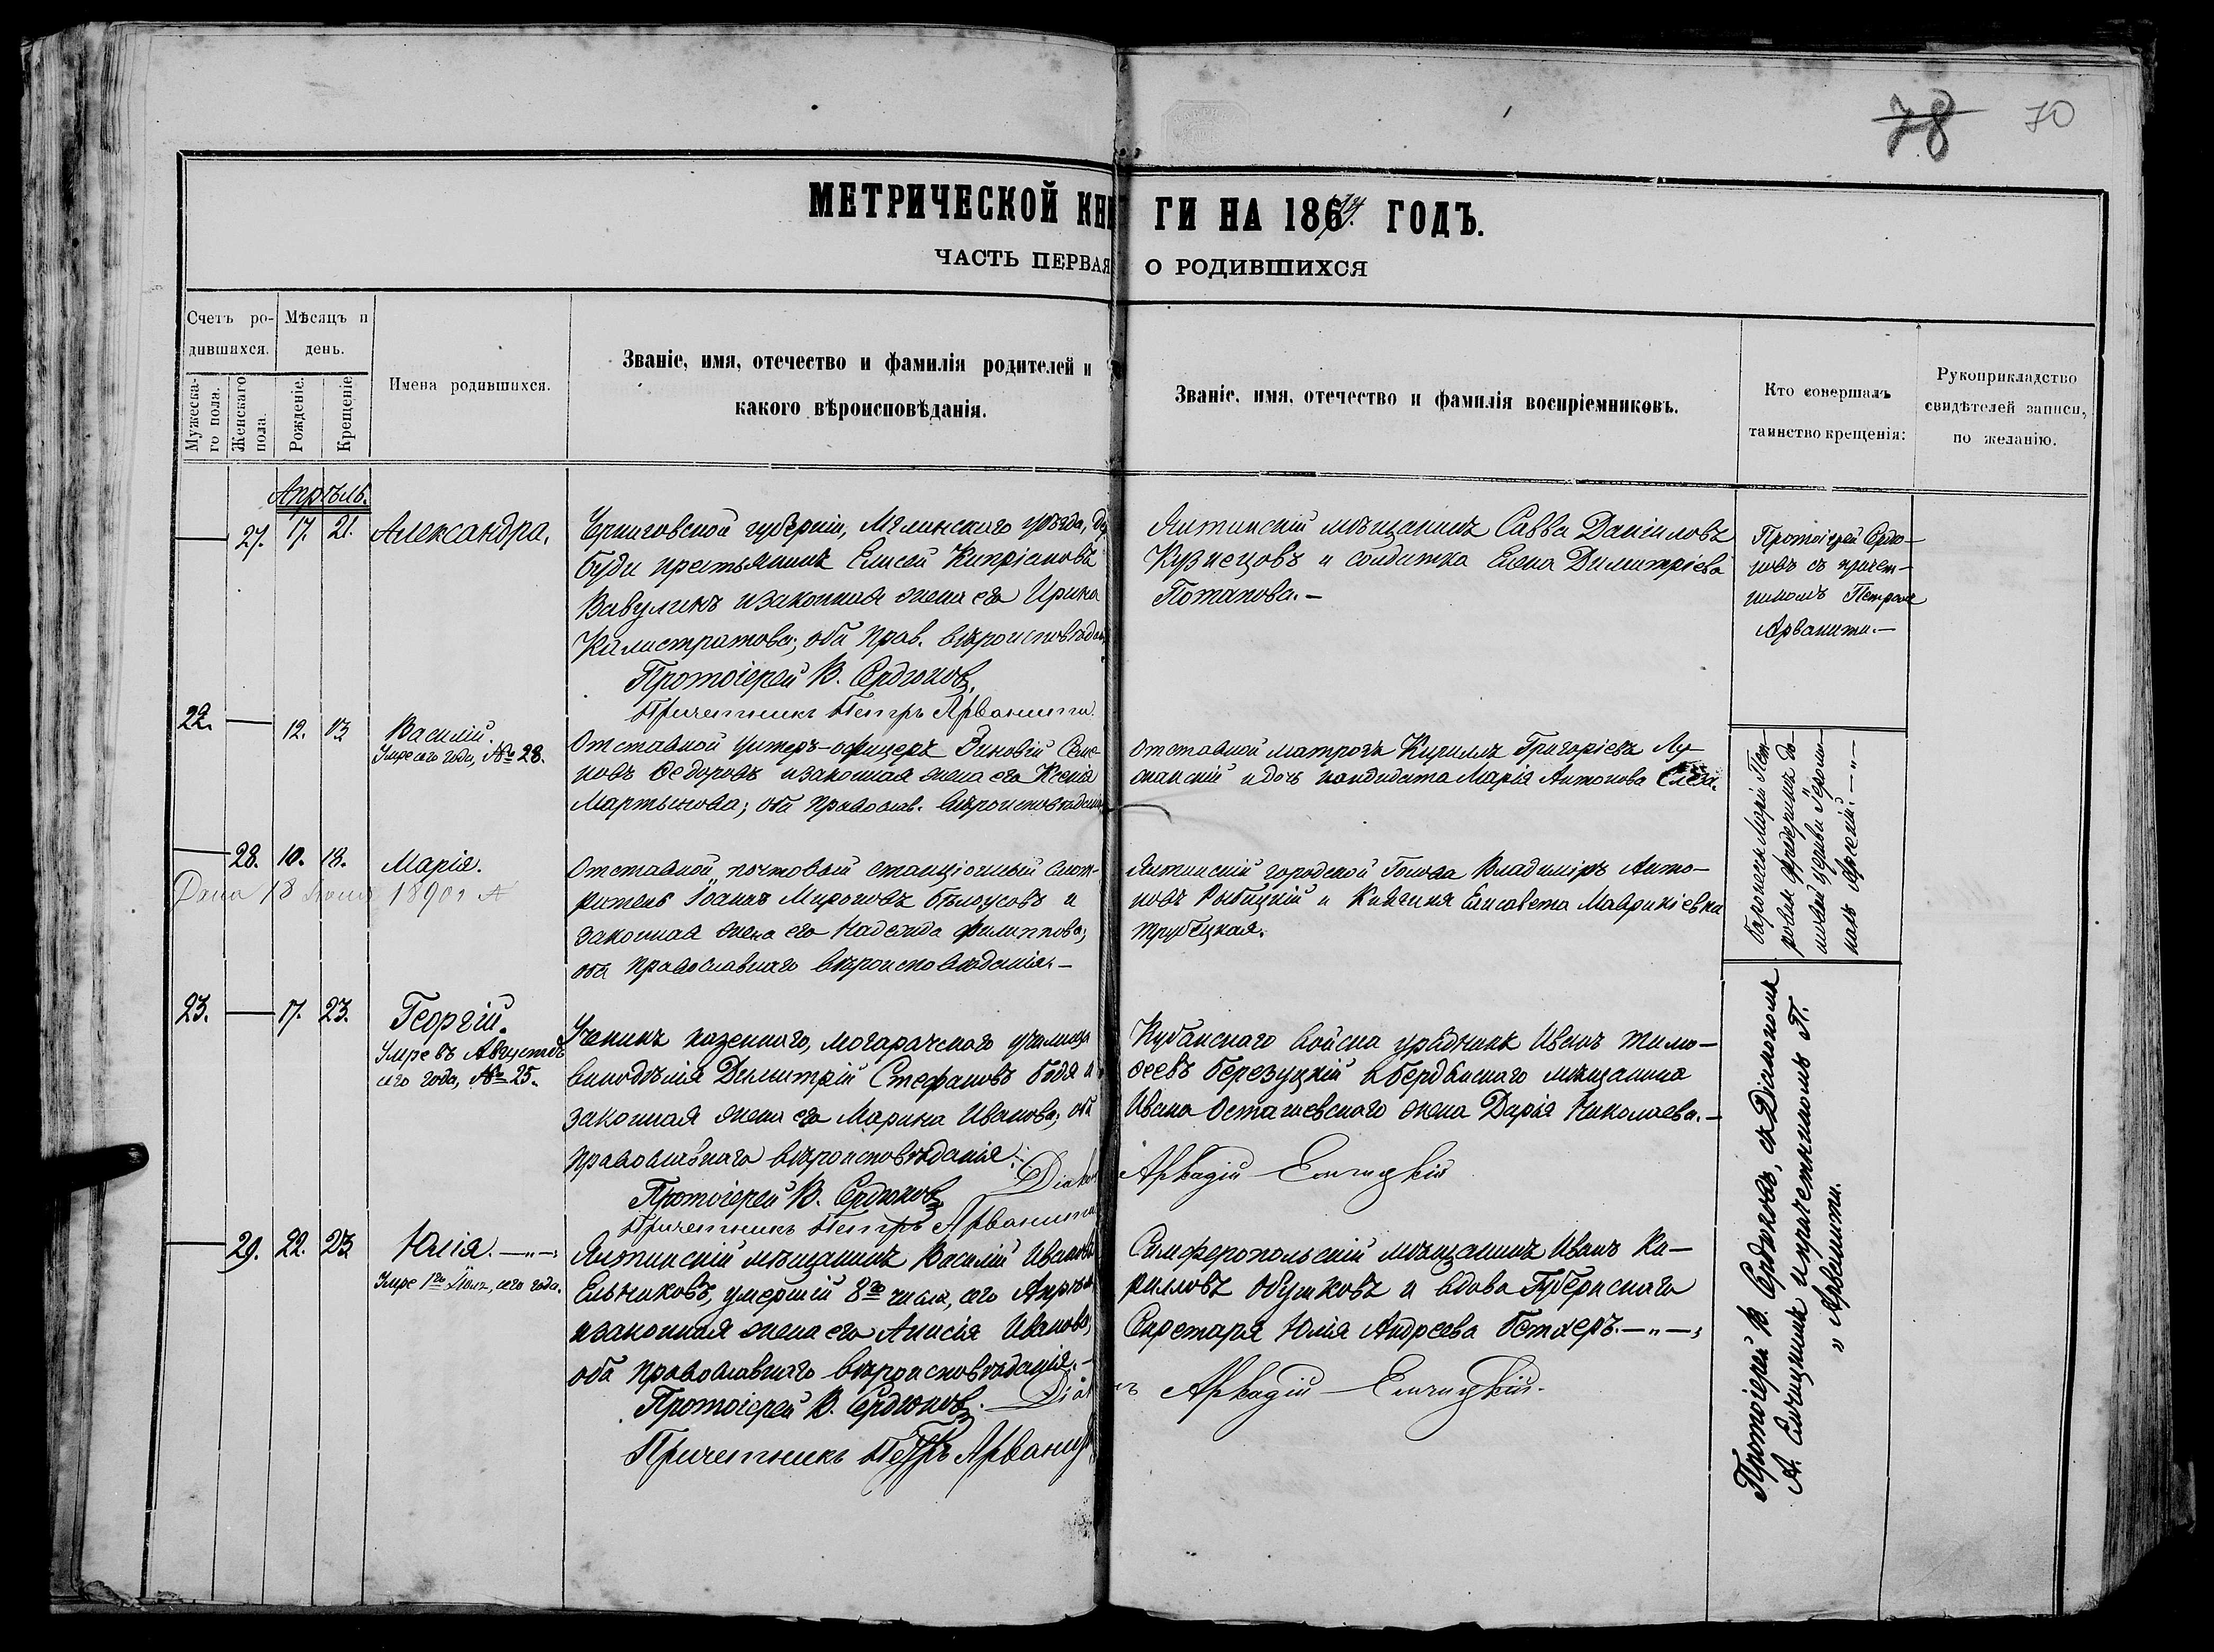 78 70
МЕТРИЧЕСКОЙ КНИГИ НА 1874 ГОДЪ.
ЧАСТЬ ПЕРВАЯ О РОДИВШИХСЯ
Счетъ ро-
дившихся.
Мужеска-
го пола.
Женскаго
пола.
Мѣсяцъ и
день.
Рожденіе.
Крещеніе
Имена родившихся.
Званіе, имя, отечество и фамилія родителей и
какого вѣроисповѣданія.
Званіе, имя, отечество и фамилія воспріемниковъ.
Кто совершалъ
таинство крещенія:
Рукоприкладство
свидѣтелей записи,
по желанію.
Апрѣль.
27. 17. 21. Александра.
Черниговской губерніи, Мглинскаго уѣзда,
Буди крестьянинъ Елисей Кипріановъ
Вавулинъ и законная жена его Ирина
Калистратова; оба прав. вѣроисповѣдан
Протоіерей В. Сердюковъ.
Причетникъ Петръ Арванити.
Ялтинскій мѣщанинъ Савва Даніиловъ
Кузнецовъ и солдатка Елена Димитріева
Потапова.—
Протоіерей Сердю-
ковъ съ причет-
никомъ Петромъ
Арванити.—
22. — 12. 13 Василій.
Умре сего года, № 28.
Отставной унтеръ-офицеръ Зиновій Семе-
новъ Ѳедоровъ и законная жена его Ксенія
Мартынова; оба православ. вѣроисповѣданія
Отставной матрозъ Кириллъ Григоріевъ Лу-
манскій и дочь кандидата Марія Антонова
28. 10. 13. Марія.
Дана 18 1890 г
Отставной почтовый станціонный смот-
ритель Іоаннъ Мироновъ Бѣлоусовъ и
законная жена его Надежда Филиппова;
оба православнаго вѣроисповѣданія.—
Ялтинскій городской Голова Владиміръ Анто-
новъ Рыбицкій и Княгиня Елисавета Маврикіевна
Трубецкая.
23. — 17. 23. Георгій.
Умре въ Августѣ
сего года, № 25.
Ученикъ казеннаго, могарачскаго училища
винодѣлія Димитрій Стефановъ Бодя и
законная жена его Марина Иванова; оба
православнаго вѣроисповѣданія.
Протоіерей В. Сердюковъ
Причетникъ Петръ Арванити
Діаконъ Аркадій Емчицкій
Кубанскаго войска урядникъ Иванъ Тимо-
ѳеевъ Березуцкій и бердянскаго мѣщанина
Ивана Осташевскаго жена Дарія Николаева.—
29. 22. 23 Юлія.
Умре 1го Іюля, сего года.
Ялтинскій мѣщанинъ Василій Ивановъ
Ельниковъ, умершій 8го числа, сего Апрѣля
и законная жена его Анисія Иванова,
оба православнаго вѣроисповѣданія.—
Протоіерей В. Сердюковъ.
Причетникъ Петръ Арванити
Симферопольскій мѣщанинъ Иванъ Ки-
рилловъ Обушковъ и вдова Губернскаго
Секретаря Юлія Андреева Бетхеръ.
Аркадій Емчицкій.
Протоіерей В. Сердюковъ, съ Діакономъ
А. Емчицкимъ и причетникомъ П.
Арванити.